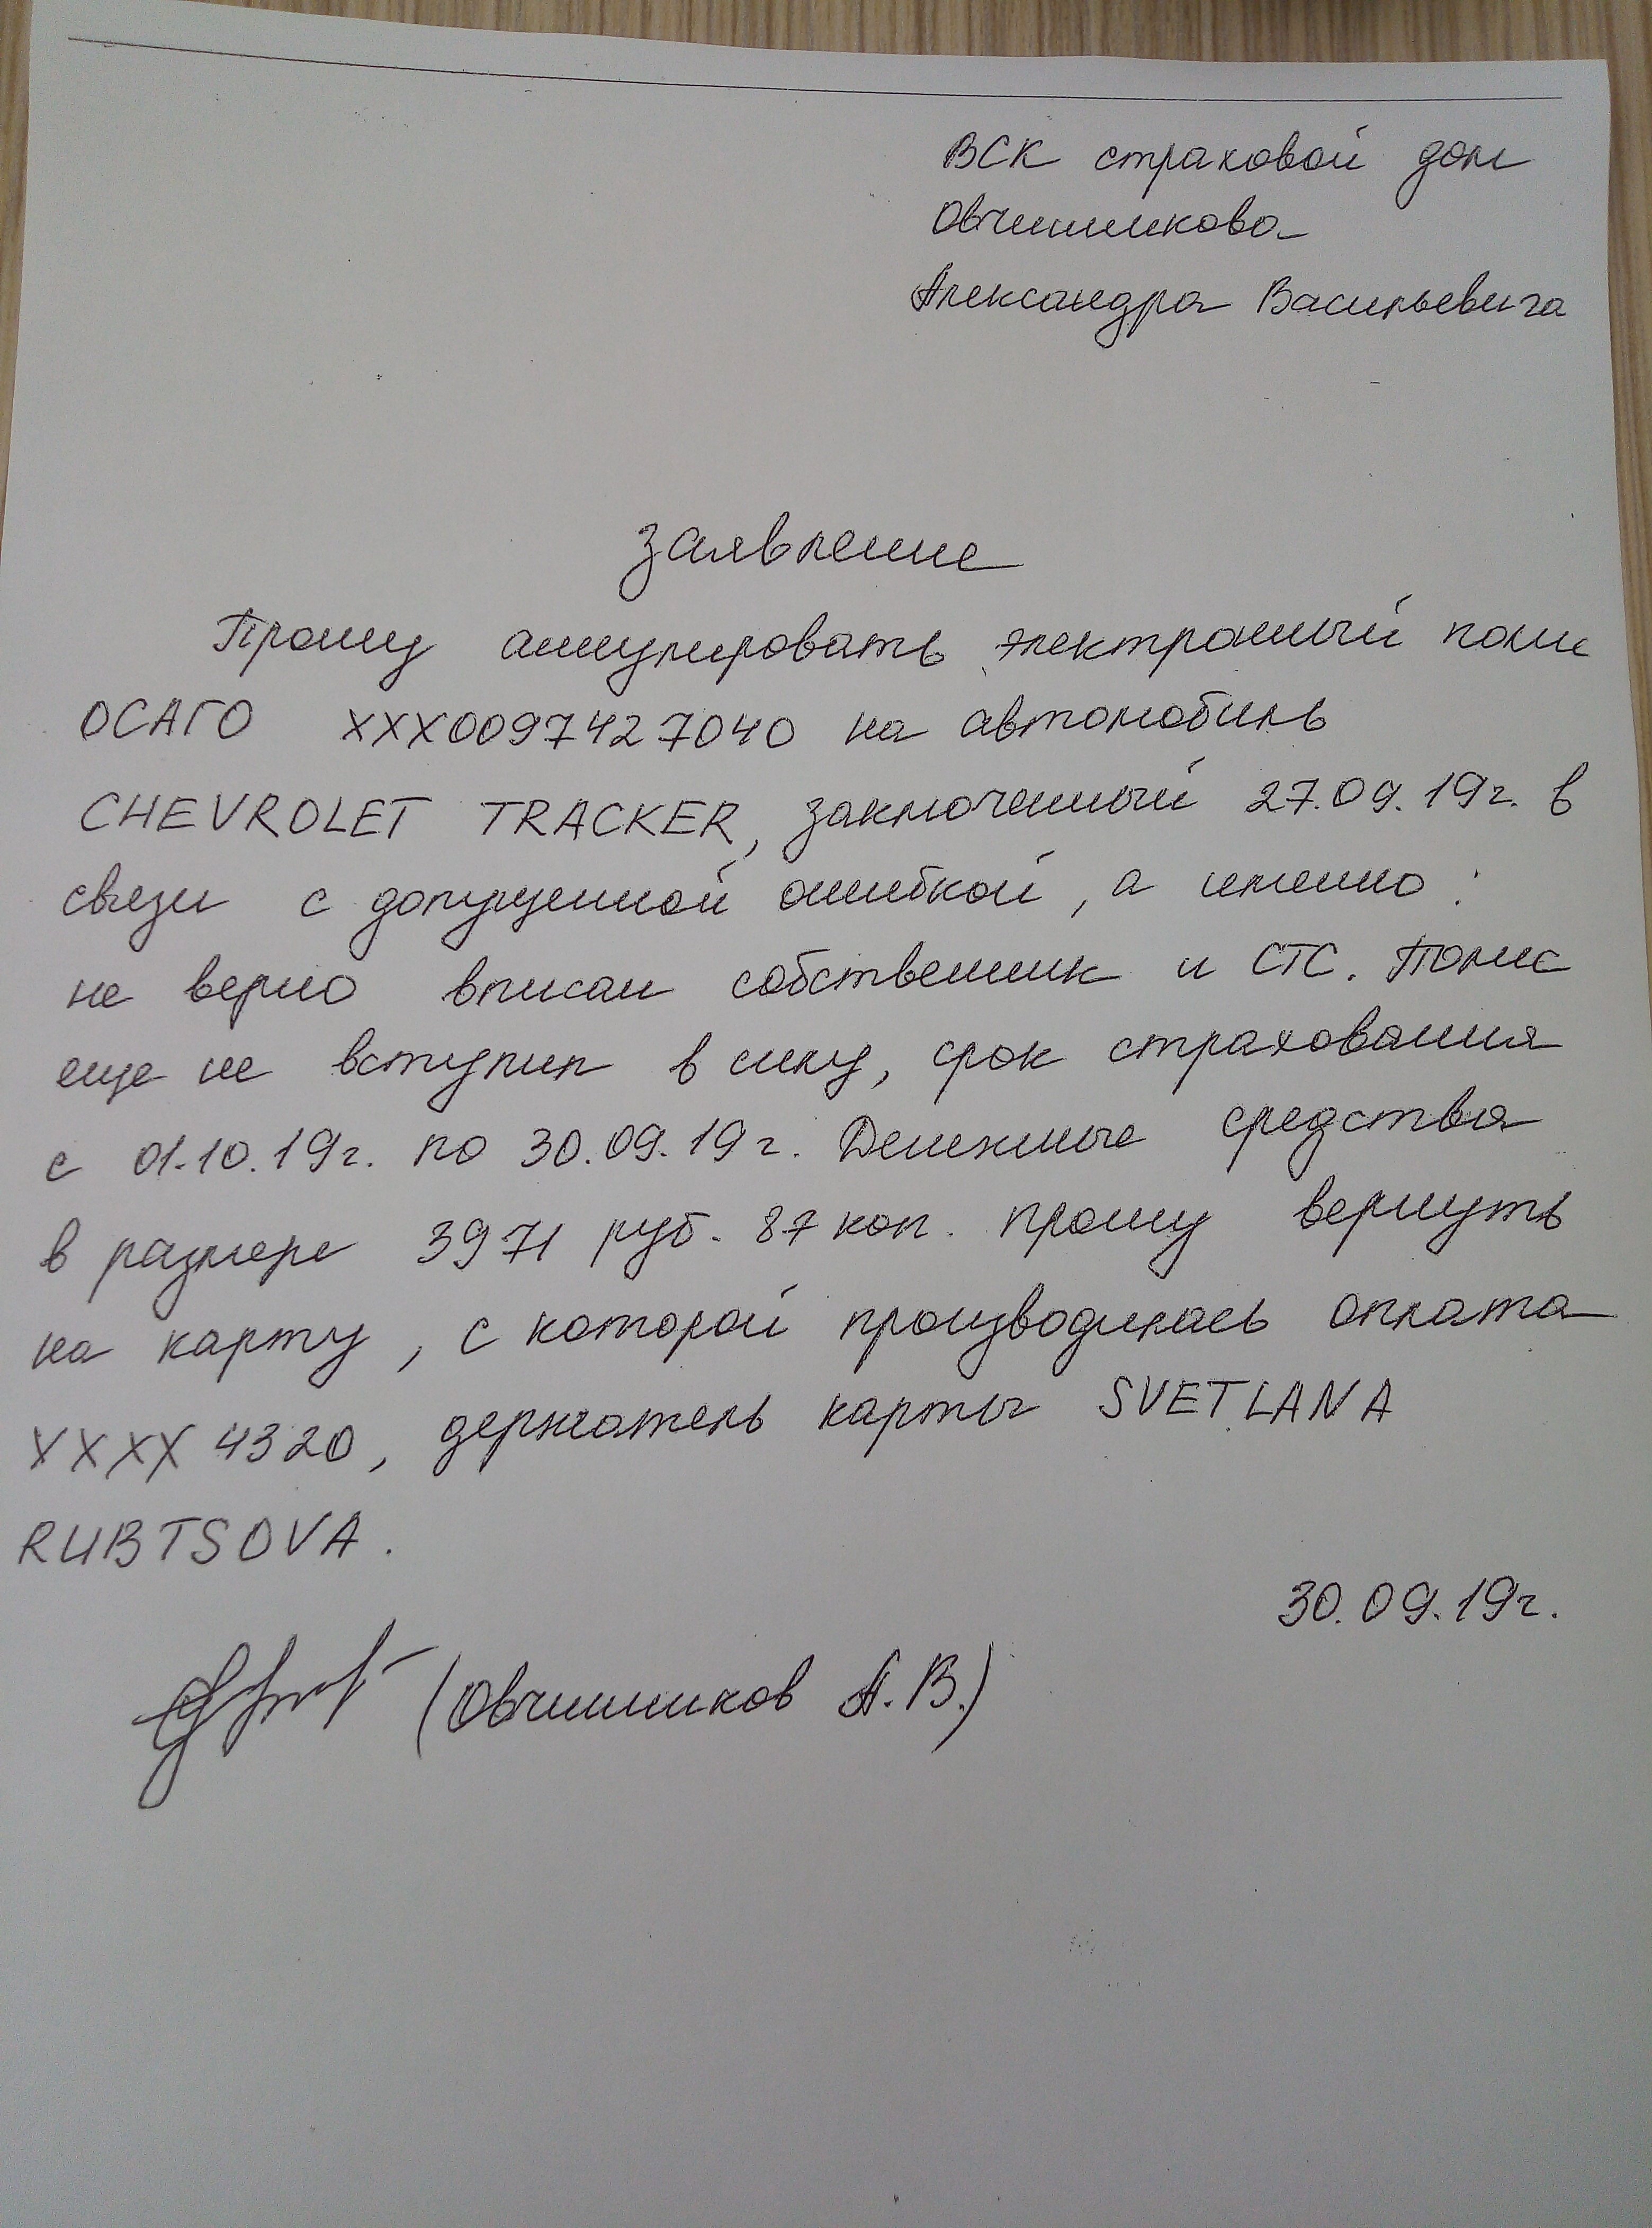 ВСК страховой дом
Овчинникова
Александра Васильевича
заявление
Прошу аннулировать электронный полис
ОСАГО XXX0097427040 на автомобиль
CHEVROLET TRACKER, заключенный 27.09.19г. в
связи с допущенной ошибкой, а именно:
не верно вписан собственник и СТС. Полис
еще не вступил в силу, срок страхования
с 01.10.19г. по 30.09.19г. Денежные средства
в размере 3971 руб. 87 коп. прошу вернуть
на карту, с которой производилась оплата
XXXX 4320, держатель карты SVETLANA
RUBTSOVA.
30.09.19г.
(Овчинников А.В.)